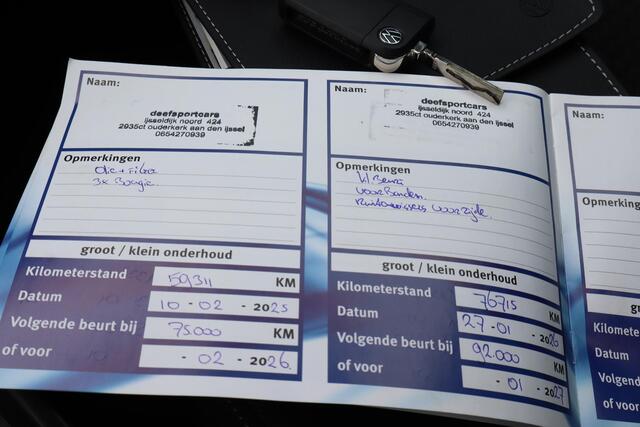 Naam:
deefsportcars
ijsseldijk noord 424
2935ct ouderkerk aan den ijssel
0654270939
Opmerkingen
Olie + Filter
3x Bougie.
groot / klein onderhoud
Kilometerstand 59311 KM
Datum 10 - 02 - 2025
Volgende beurt bij 75.000 KM
of voor - 02 - 2026.
Naam:
deefsportcars
ijsseldijk noord 424
2935ct ouderkerk aan den ijssel
0654270939
Opmerkingen
Kl. Beurt
voorbanden.
Ruitenwissers voorzijde.
groot / klein onderhoud
Kilometerstand 76715 KM
Datum 27 - 01 - 2026
Volgende beurt bij 92.000 KM
of voor - 01 - 2027
Naam:
Opmerking
Kilometer
Datum
Volgende
of voor